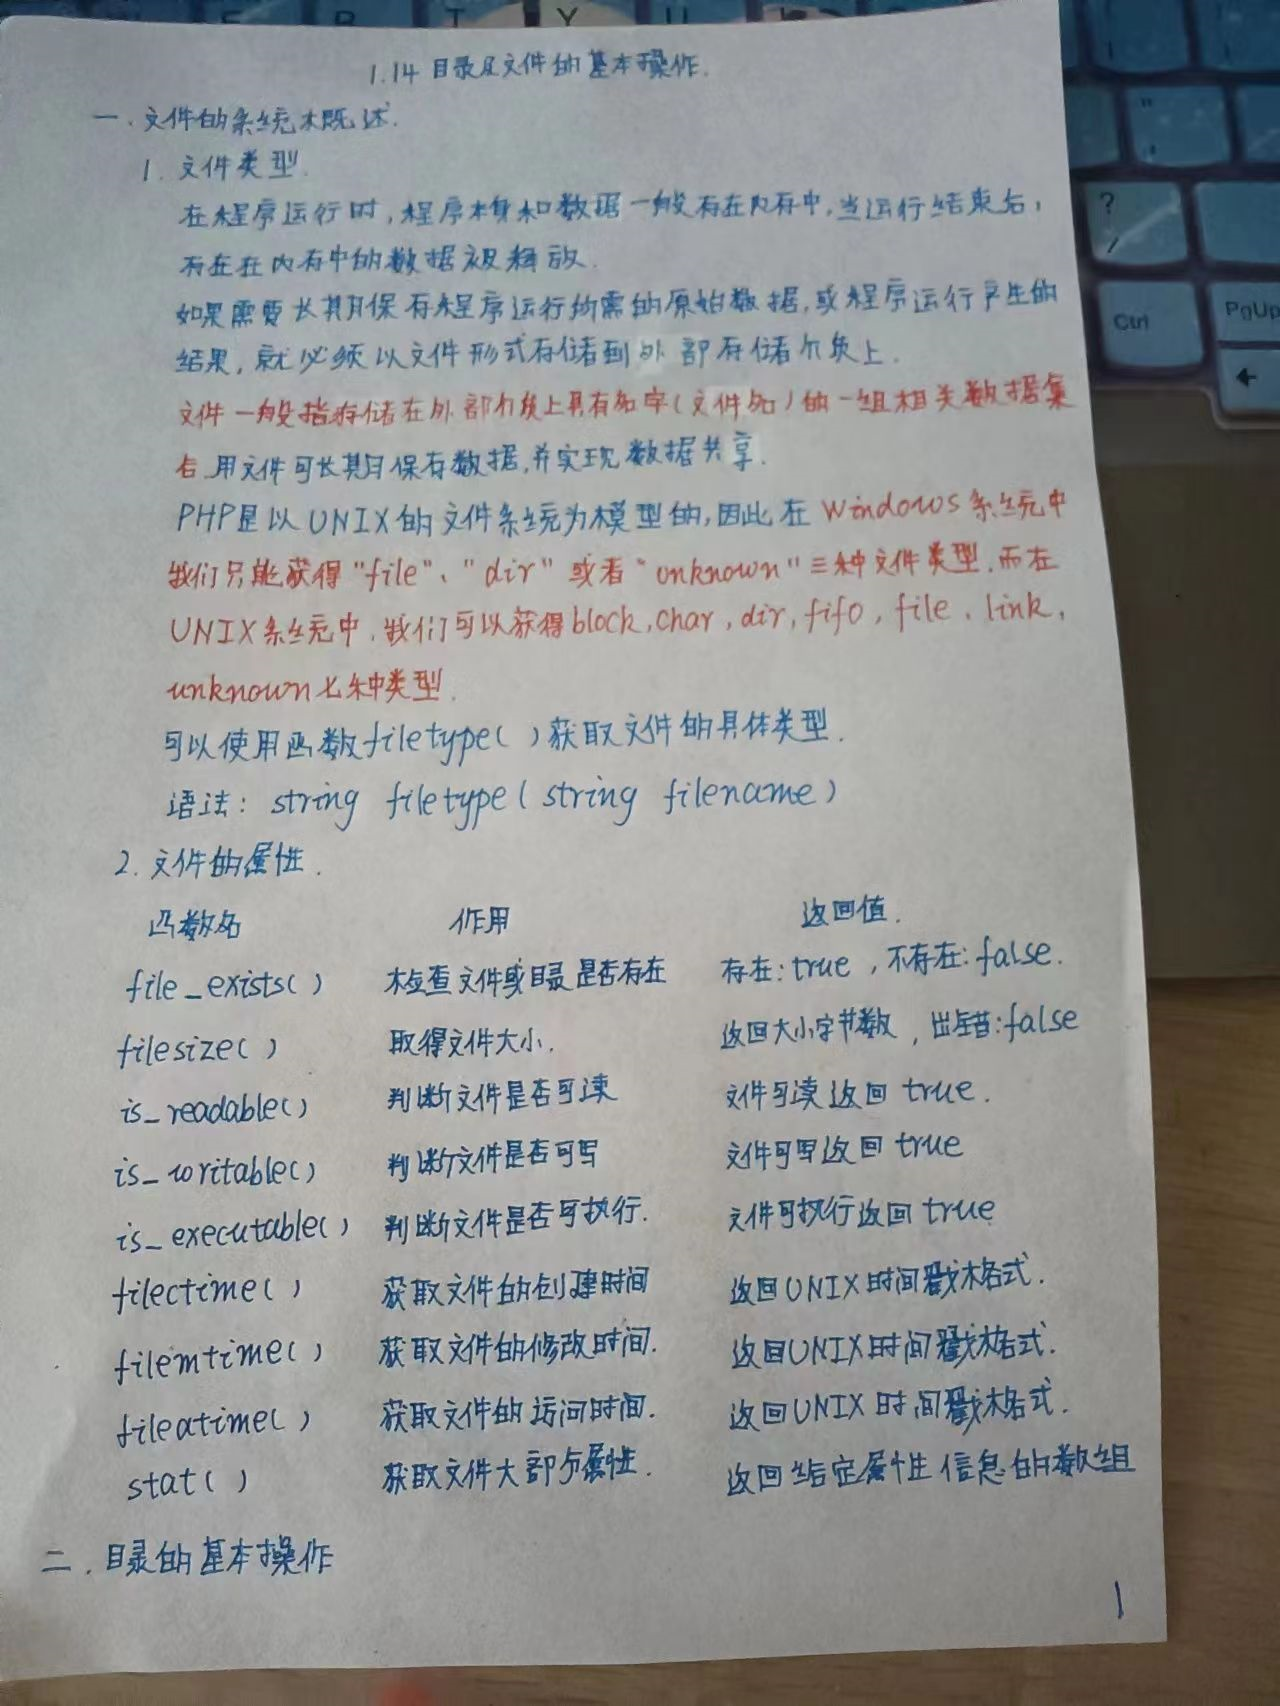 1.14 目录及文件的基本操作.
一. 文件的系统概述.
1. 文件类型.
在程序运行时,程序本身和数据一般存在内存中,当运行结束后,
存在在内存中的数据被释放.
如果需要长期保存程序运行所需的原始数据,或程序运行产生的
结果,就必须以文件形式存储到外部存储介质上.
文件一般指存储在外部介质上具有名字(文件名)的一组相关数据集
合.用文件可长期保存数据,并实现数据共享.
PHP是以UNIX的文件系统为模型的,因此在Windows系统中
我们只能获得"file"、"dir"或者"unknown"三种文件类型.而在
UNIX系统中,我们可以获得block,char,dir,fifo,file,link,
unknown七种类型.
可以使用函数filetype()获取文件的具体类型.
语法: string filetype(string filename)
2. 文件的属性.
函数名 作用 返回值.
file_exists() 检查文件或目录是否存在 存在:true,不存在:false.
filesize() 取得文件大小. 返回大小字节数,出错:false
is_readable() 判断文件是否可读 文件可读返回 true.
is_writable() 判断文件是否可写 文件可写返回 true
is_executable() 判断文件是否可执行. 文件可执行返回 true
filectime() 获取文件的创建时间 返回UNIX时间戳格式.
filemtime() 获取文件的修改时间. 返回UNIX时间戳格式.
fileatime() 获取文件的访问时间. 返回UNIX时间戳格式.
stat() 获取文件大部分属性. 返回给定属性信息的数组
二. 目录的基本操作
1
R T Y U
?
/
"
'
Ctrl
PgUp
←